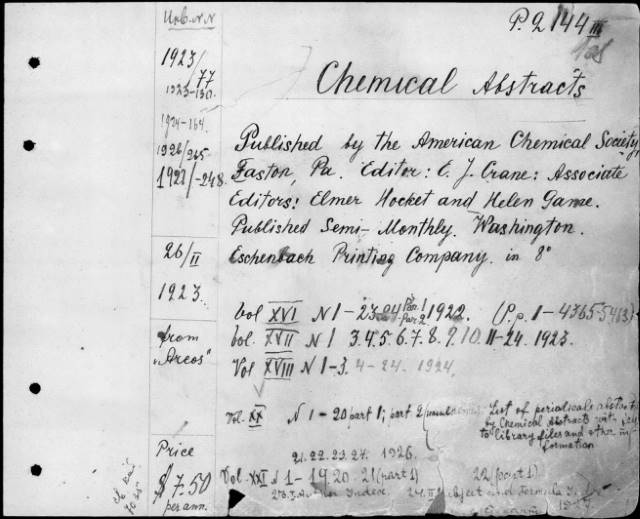 P. 2 144 III
Chemical Abstracts
Published by the American Chemical Society,
Easton, Pa. Editor: E. J. Crane: Associate
Editors: Elmer Hocket and Helen Game.
Published Semi-Monthly. Washington.
Eschenbach Printing Company. in 8°
vol XVI N 1-23.24 Par. 1 Par 2 1922. (P.p. 1-4365-5463)
vol. XVII N 1 3.4.5.6.7.8.9.10.11-24. 1923.
Vol XVIII N 1-3. 4-24. 1924.
Vol. XX N 1-20 part 1; part 2
List of periodicals
by Chemical Abstracts
to library files and other in-
formation
21.22.23.24. 1926.
Vol. XXI N 1-19.20-21 (part 1) 22 (part 1)
Index. Subject and Formula
1923/77
1923-130.
1924-164.
1926/265.
1927/-248.
26/II
1923.
from
"Arcos"
Price
$ 7.50
per ann.